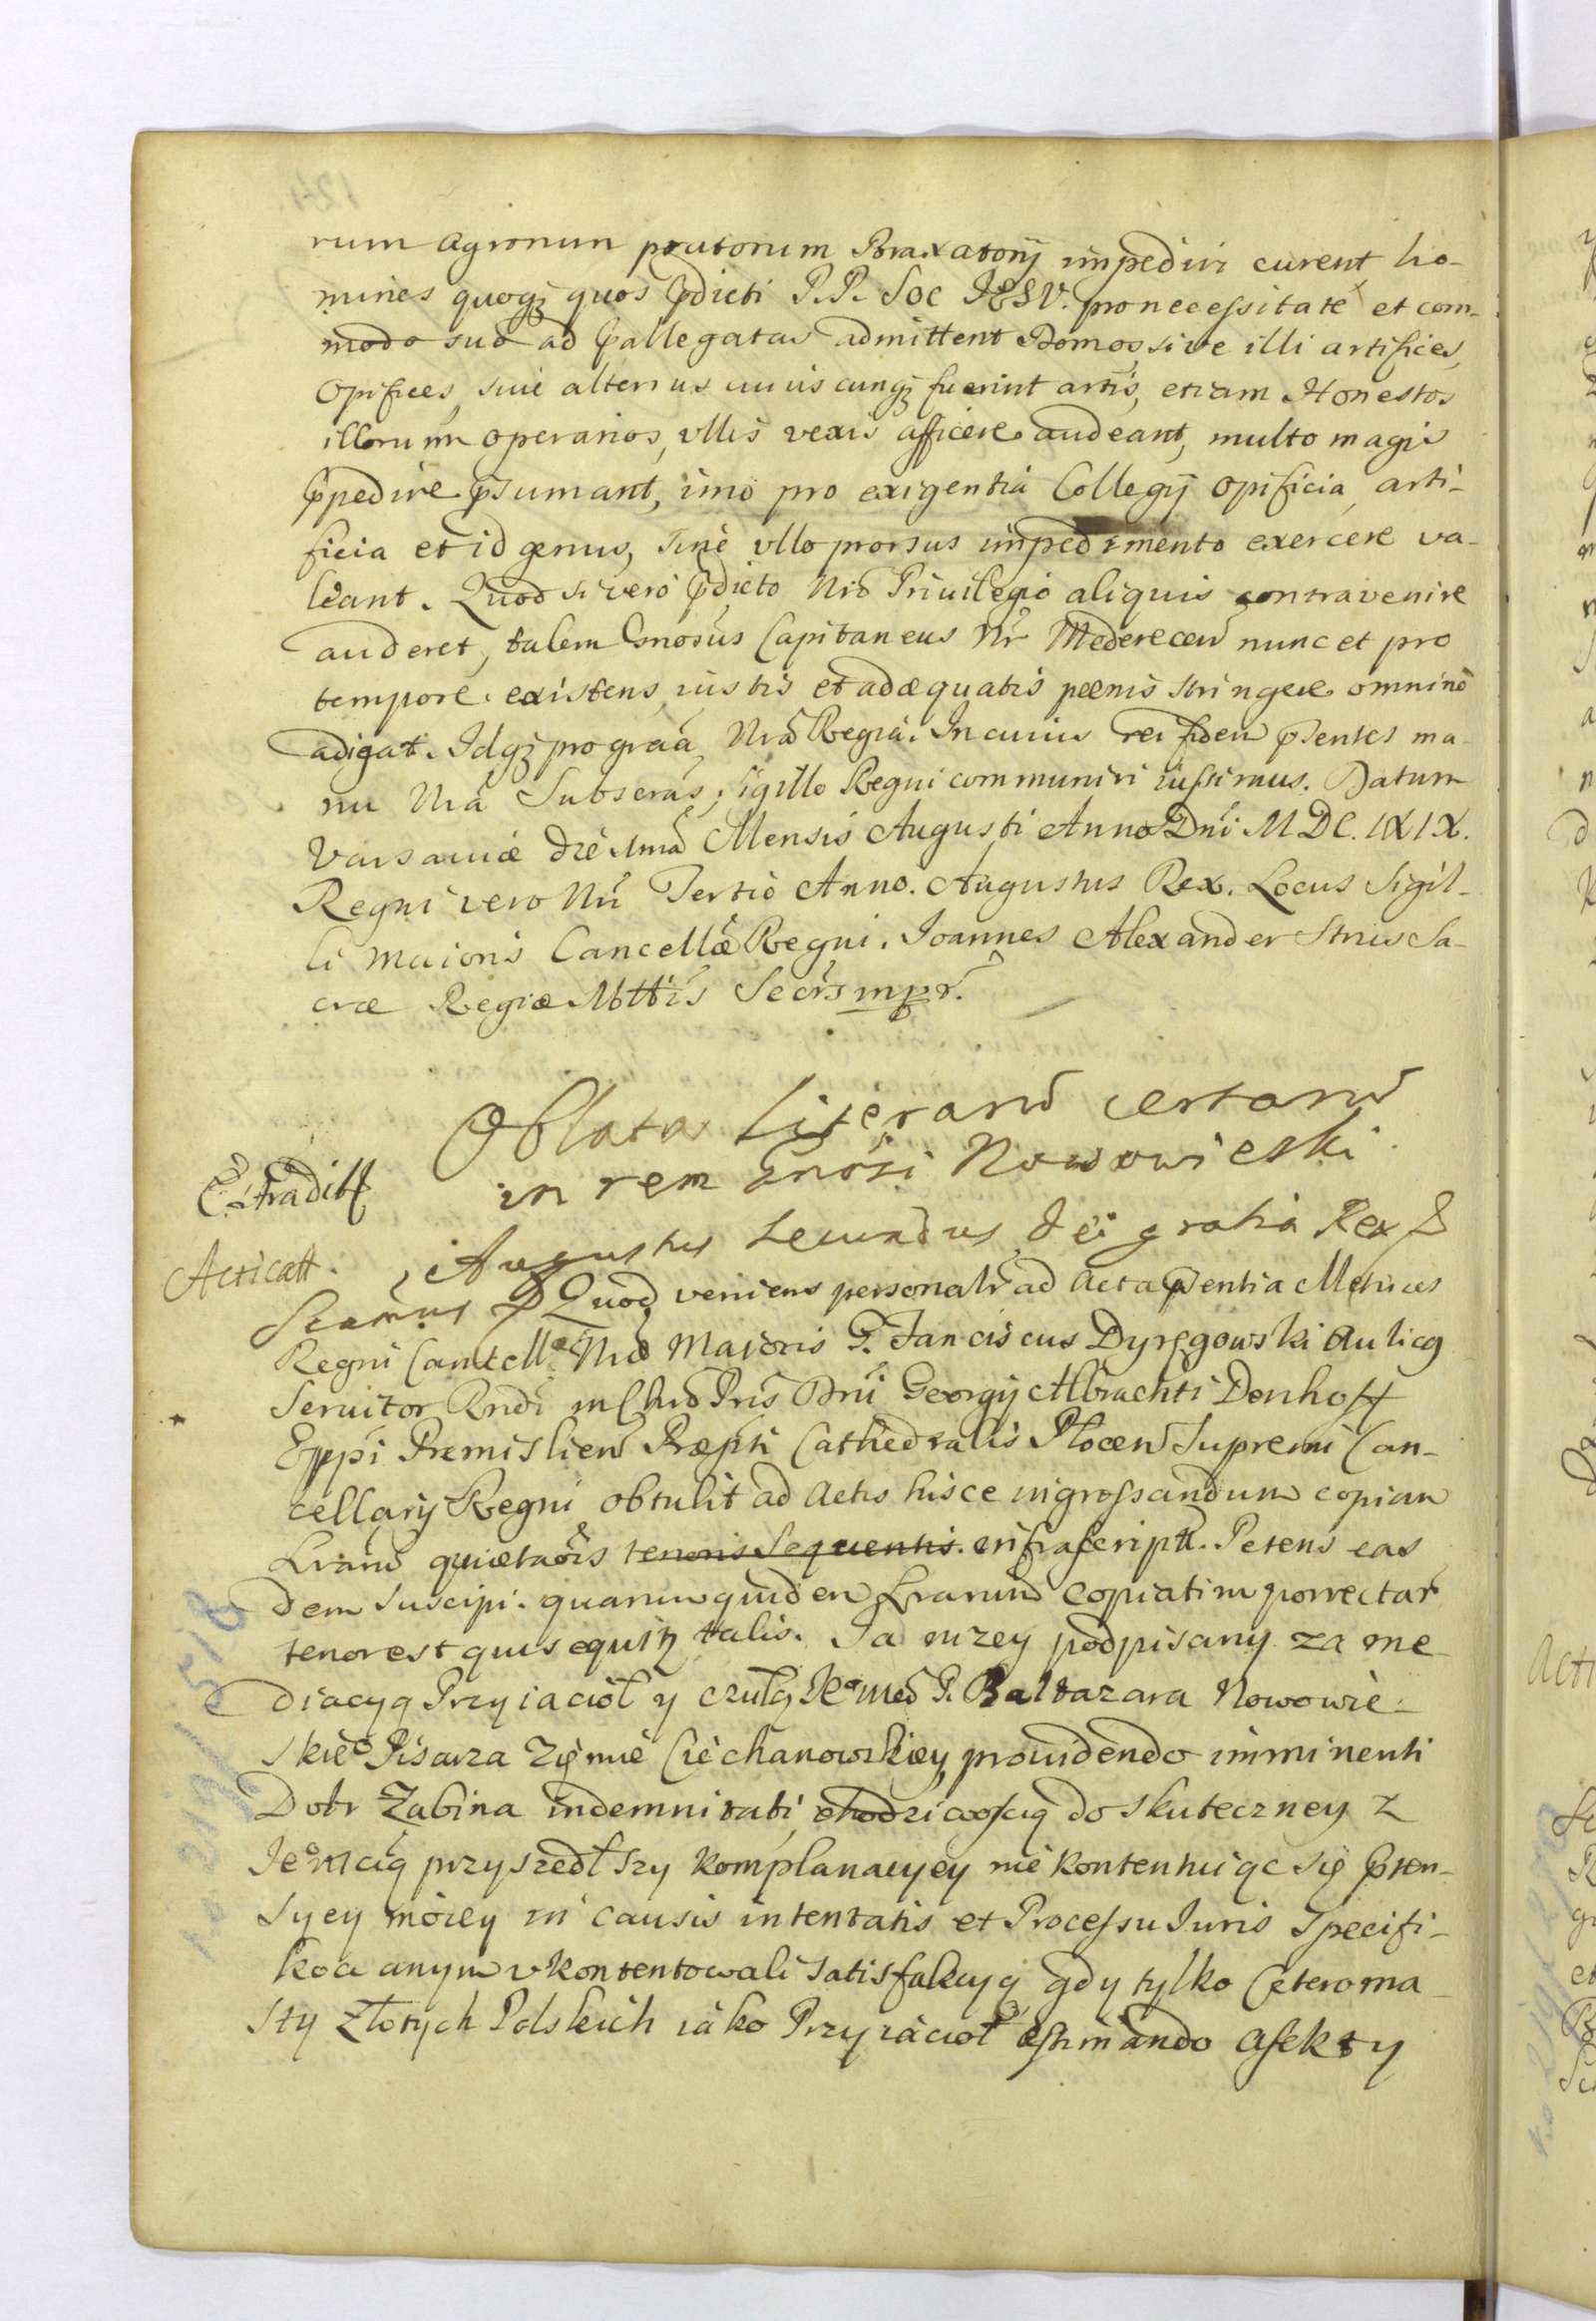 rum agrorum pratorum Braxatorij impediri curent ho-
mines quoqȝ quos pdicti P.P. Soc IESV. pro necessitate et com-
modo suo ad pallegatas admittent Domos, sive illi artifices,
Opifices, sive alterius cuiuscunqȝ fuerint artis, etiam Honestos
illorum operarios, vllis vexis afficere audeant, multo magis
ppedire psumant, imo pro exigentia Collegij opificia, arti-
ficia et id genus, sine vllo prorsus impedimento exercere va-
leant. Quod si vero pdicto Nro Priuilegio aliquis contravenire
auderet, talem Gnosus Capitaneus Nr Mederecen nunc et pro
tempore existens, iustis et adæquatis pœnis stringere omninò
adigat. Idqȝ pro graa Nra Regia. In cuius rei fidem psentes ma-
nu Nra Subscras, sigillo Regni communiri iussimus. Datum
Varsaviæ die 1ma Mensis Augusti Anno Dni MDC.IXIX.
Regni vero Nri Tertio Anno. Augustus Rex. Locus Sigil-
li maioris Cancellæ Regni. Joannes Alexander Sa-
cræ Regiæ Mttis Secrs mpr.
Oblata Literarum certarum
in rem Gnosi Nowowieski
Extradittt
Acticatt.
Augustus Secundus Dei gratia Rex
Quod veniens personalr ad Acta psentia Metrices
Regni Cancellæ Nræ Majoris G. Fanciscus Dyręgowski Aulicq
Servitor Rndi in Chro Pris Dni Georgij Albrachti Denhoff
Eppi Premislien Præpti Cathedralis Plocen Supremi Can-
cellarij Regni obtulit ad Actis hisce ingrossandum copiam
Lrarum quietaois tenoris sequentis. infrascript. Petens eas
dem suscipi. quarum quidem Lrarum copiatim porrectar
tenor est qui sequitȝ talis. Ja nizey podpisany za me-
diacyą Przyiaciół y czułą Jeomści P. Baltazara Nowowie-
skieo Pisarza Ziemie Ciechanowskiey, prouidendo imminenti
Dobr Zabina indemnitati, do skuteczney z
Jeomcią przyszedłszy komplanacyey nie kontentuiąc się pten-
syey moiey in causis intentatis et Processu Iuris specifi-
kowanym vkontentowali satisfakcyą gdy tylko Cztero ma
sty Złotych Polskich iako Przyiacioł æstimando afekty